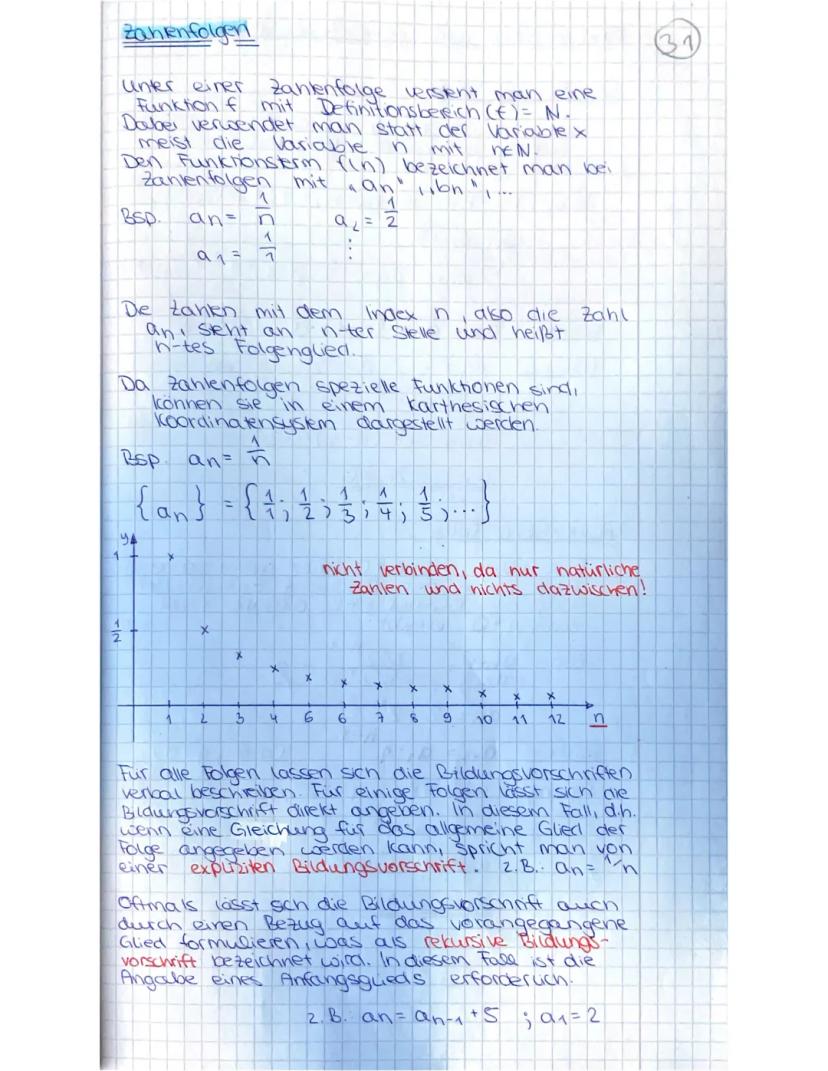 Zahlenfolgen
31
Unter einer Zahlenfolge versteht man eine
Funktion f mit Definitionsbereich (f) = N.
Dabei verwendet man statt der Variable x
meist die Variable n mit n∈N.
Den Funktionsterm f(n) bezeichnet man bei
Zahlenfolgen mit „an", „bn", ...
Bsp. an = 1/n a2 = 1/2
a1 = 1/1 ⋮
De Zahlen mit dem Index n, also die Zahl
an, steht an n-ter Stelle und heißt
n-tes Folgenglied.
Da Zahlenfolgen spezielle Funktionen sind,
können sie in einem Karthesischen
Koordinatensystem dargestellt werden.
Bsp. an = 1/n
{an} = {1/1; 1/2; 1/3; 1/4; 1/5; ...}
y
1
nicht verbinden, da nur natürliche
Zahlen und nichts dazwischen!
1/2
1 2 3 4 5 6 7 8 9 10 11 12 n
Für alle Folgen lassen sich die Bildungsvorschriften
verbal beschreiben. Für einige Folgen lässt sich die
Bildungsvorschrift direkt angeben. In diesem Fall, d.h.
wenn eine Gleichung für das allgemeine Glied der
Folge angegeben werden kann, spricht man von
einer expliziten Bildungsvorschrift. z.B.: an = 1/n
Oftmals lässt sich die Bildungsvorschrift auch
durch einen Bezug auf das vorangegangene
Glied formulieren, was als rekursive Bildungs-
vorschrift bezeichnet wird. In diesem Falle ist die
Angabe eines Anfangsglieds erforderlich.
z.B.: an = an-1 + 5 ; a1 = 2